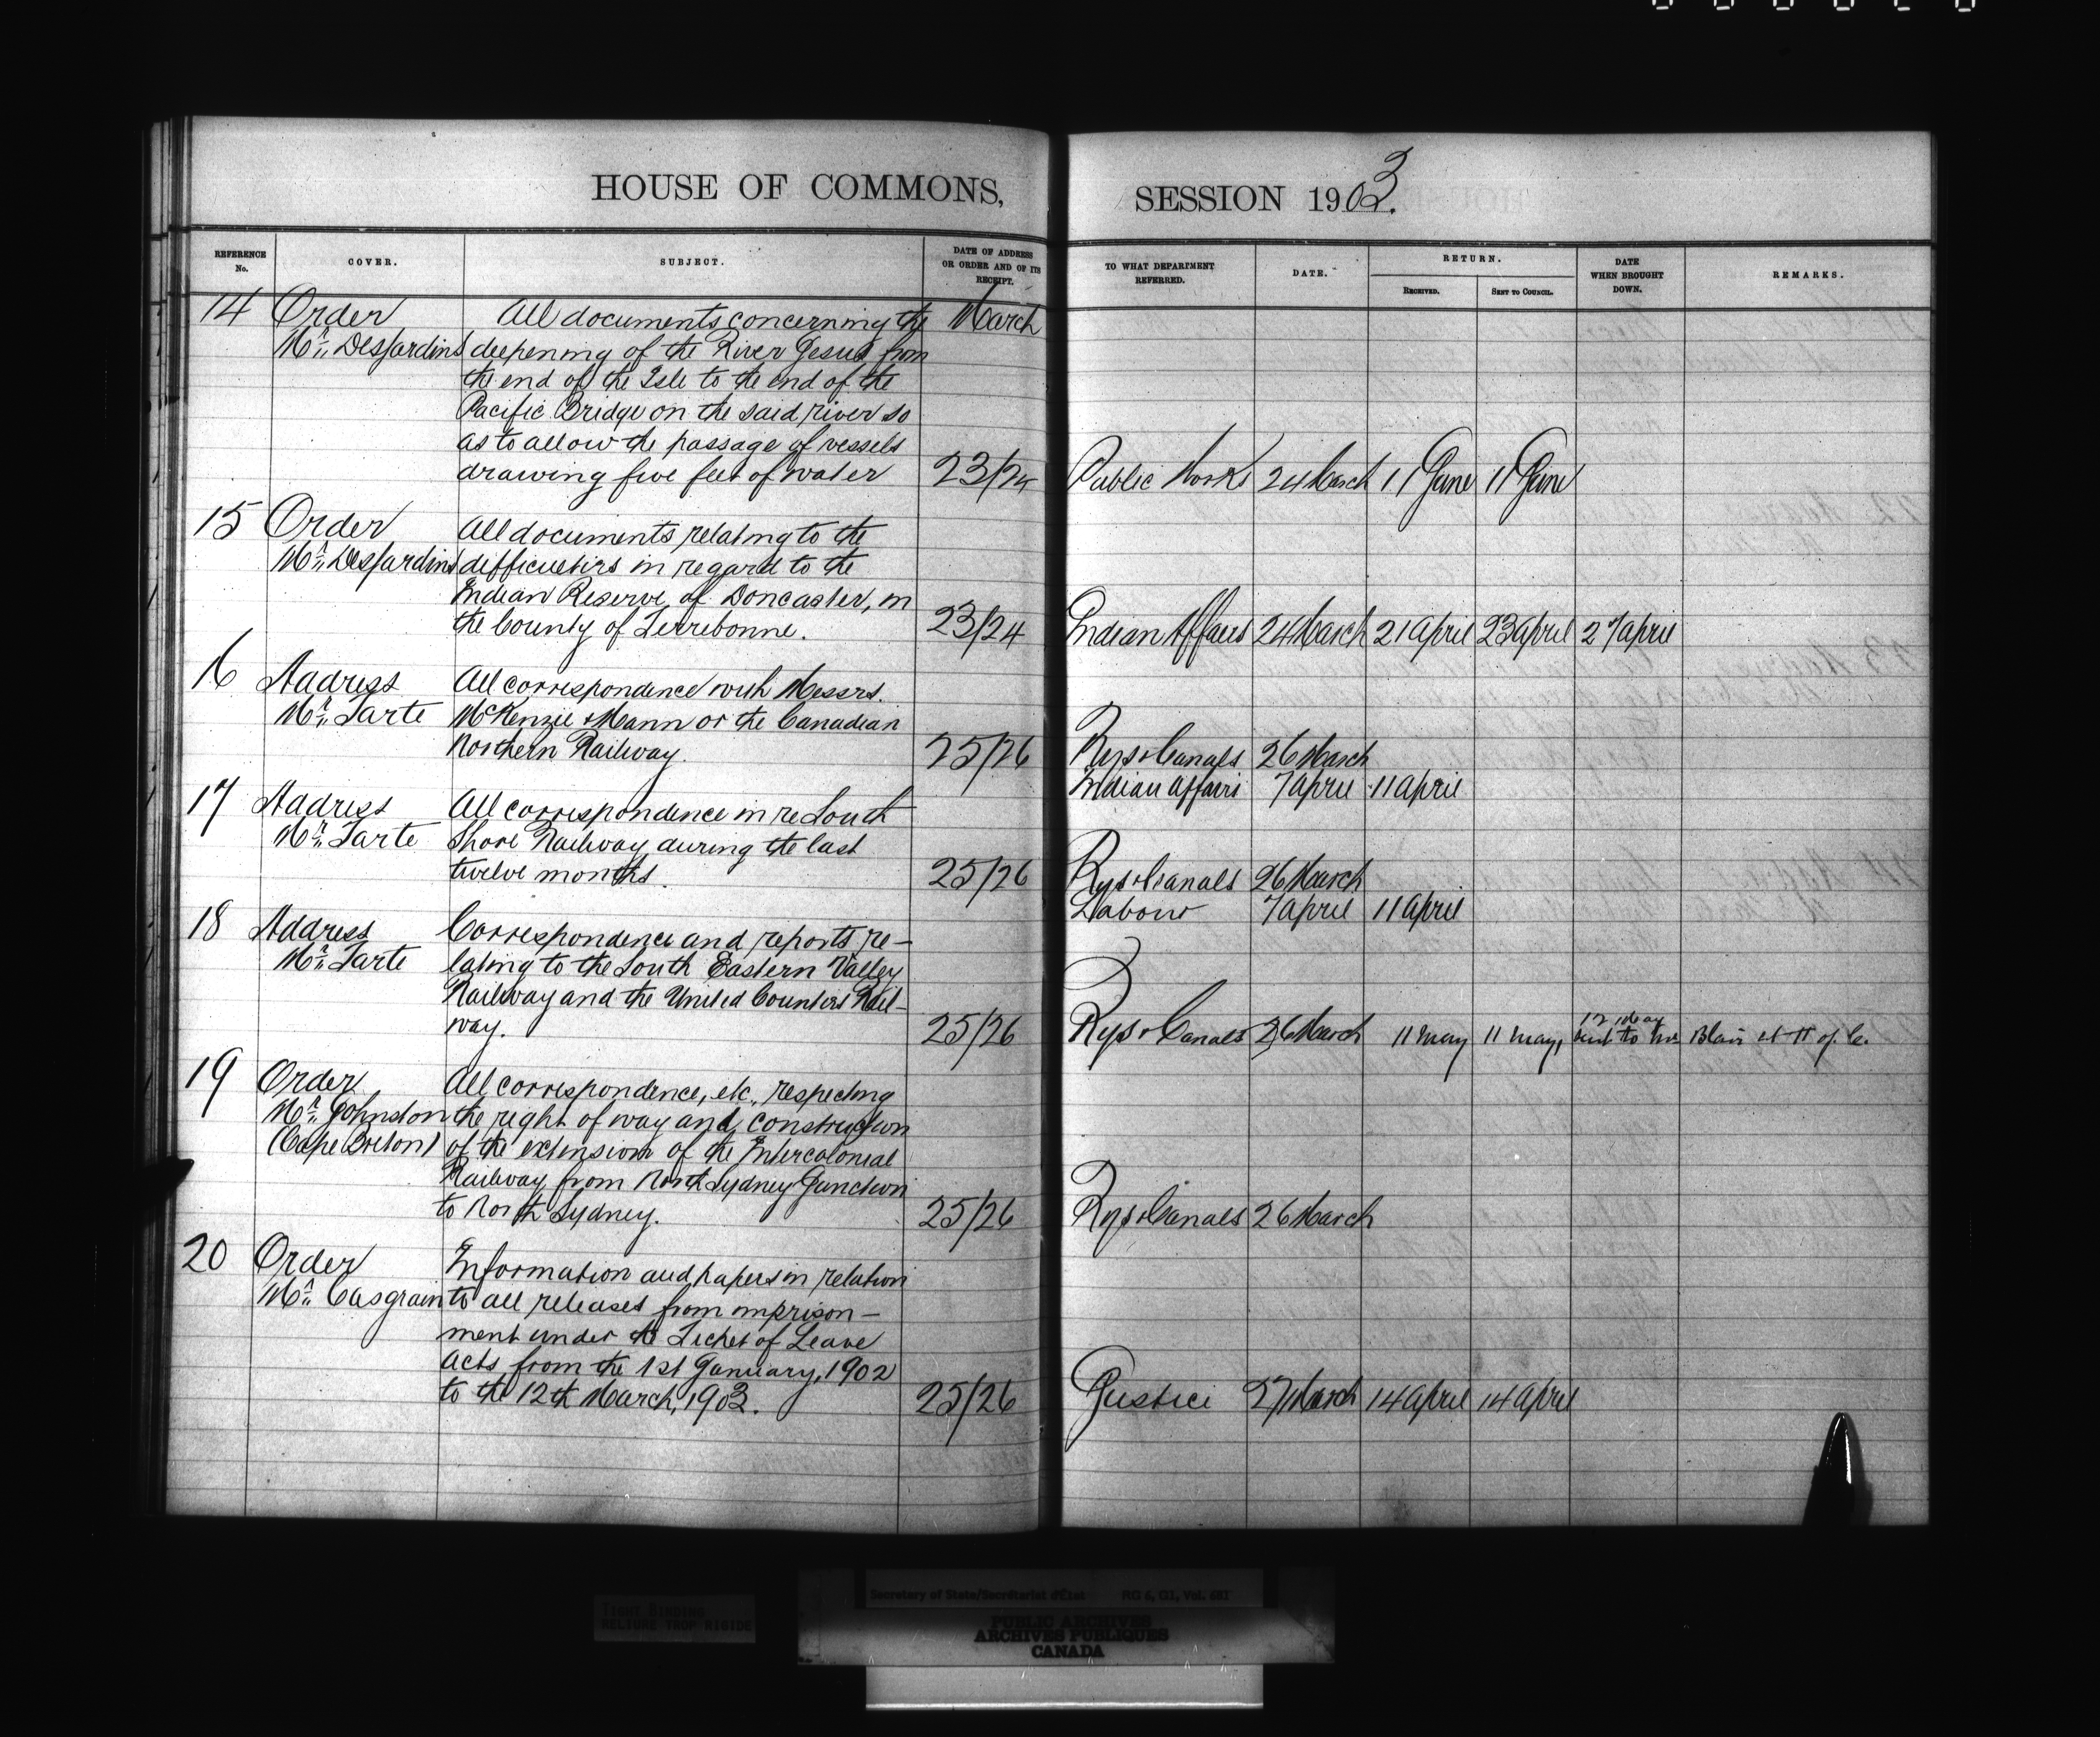 HOUSE OF COMMONS, SESSION 1903.
REFERENCE No. COVER. SUBJECT. DATE OF ADDRESS OR ORDER AND OF ITS RECEIPT. TO WHAT DEPARTMENT REFERRED. DATE. RETURN. RECEIVED. SENT TO COUNCIL. DATE WHEN BROUGHT DOWN. REMARKS.
14 Order All documents concerning the March
Mr. Desjardins deepening of the River Jesus from
the end of the Isle to the end of the
Pacific Bridge on the said river so
as to allow the passage of vessels
drawing five feet of water 23/24 Public Works 24 March 11 June 11 June
15 Order All documents relating to the
Mr. Desjardins difficulties in regard to the
Indian Reserve of Doncaster, in
the County of Terrebonne. 23/24 Indian Affairs 24 March 21 April 23 April 27 April
16 Address All correspondence with Messrs.
Mr. Tarte McKenzie & Mann or the Canadian
Northern Railway. 25/26 Rys & Canals 26 March
Indian Affairs 7 April 11 April
17 Address All correspondence in re South
Mr. Tarte Shore Railway during the last
twelve months. 25/26 Rys & Canals 26 March
Labour 7 April 11 April
18 Address Correspondence and reports re-
Mr. Tarte lating to the South Eastern Valley
Railway and the United Counties Rail-
way. 25/26 Rys & Canals 26 March 11 May 11 May, 12 May sent to Mr Blair at H of C.
19 Order All correspondence, etc., respecting
Mr. Johnston the right of way and construction
(Cape Breton) of the extension of the Intercolonial
Railway from North Sydney Junction
to North Sydney. 25/26 Rys & Canals 26 March
20 Order Information and papers in relation
Mr. Casgrain to all releases from imprison-
ment under the Ticket of Leave
Acts from the 1st January, 1902
to the 12th March, 1903. 25/26 Justice 27 March 14 April 14 April
TIGHT BINDING
RELIURE TROP RIGIDE
Secretary of State/Secrétariat d'État RG 6, G1, Vol. 681
PUBLIC ARCHIVES
ARCHIVES PUBLIQUES
CANADA